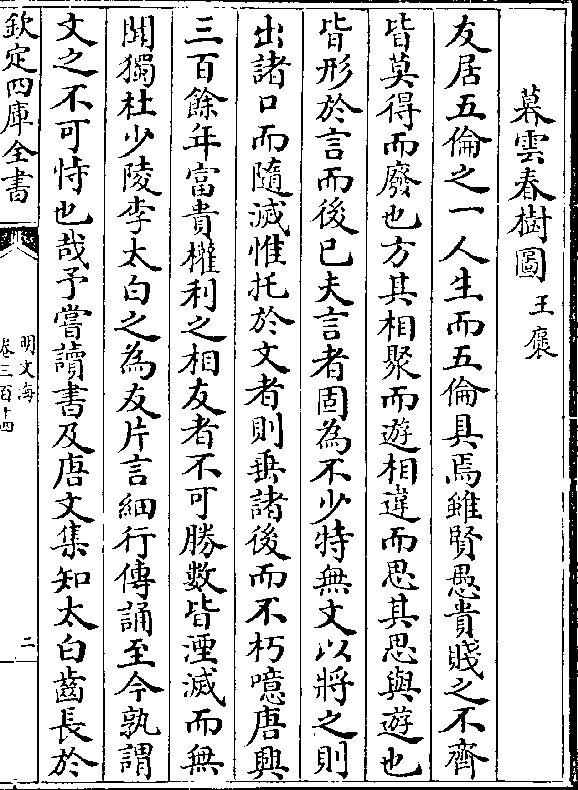 暮雲春樹圖 王褒
友居五倫之一人生而五倫具焉雖賢愚貴賤之不齊
皆莫得而廢也方其相聚而遊相違而思其思與遊也
皆形於言而後已夫言者固為不少特無文以將之則
出諸口而隨滅惟托於文者則垂諸後而不朽噫唐興
三百餘年富貴權利之相友者不可勝數皆湮滅而無
聞獨杜少陵李太白之為友片言細行傳誦至今孰謂
文之不可恃也哉予嘗讀書及唐文集知太白齒長於
欽定四庫全書
明文海
卷三百十四
二